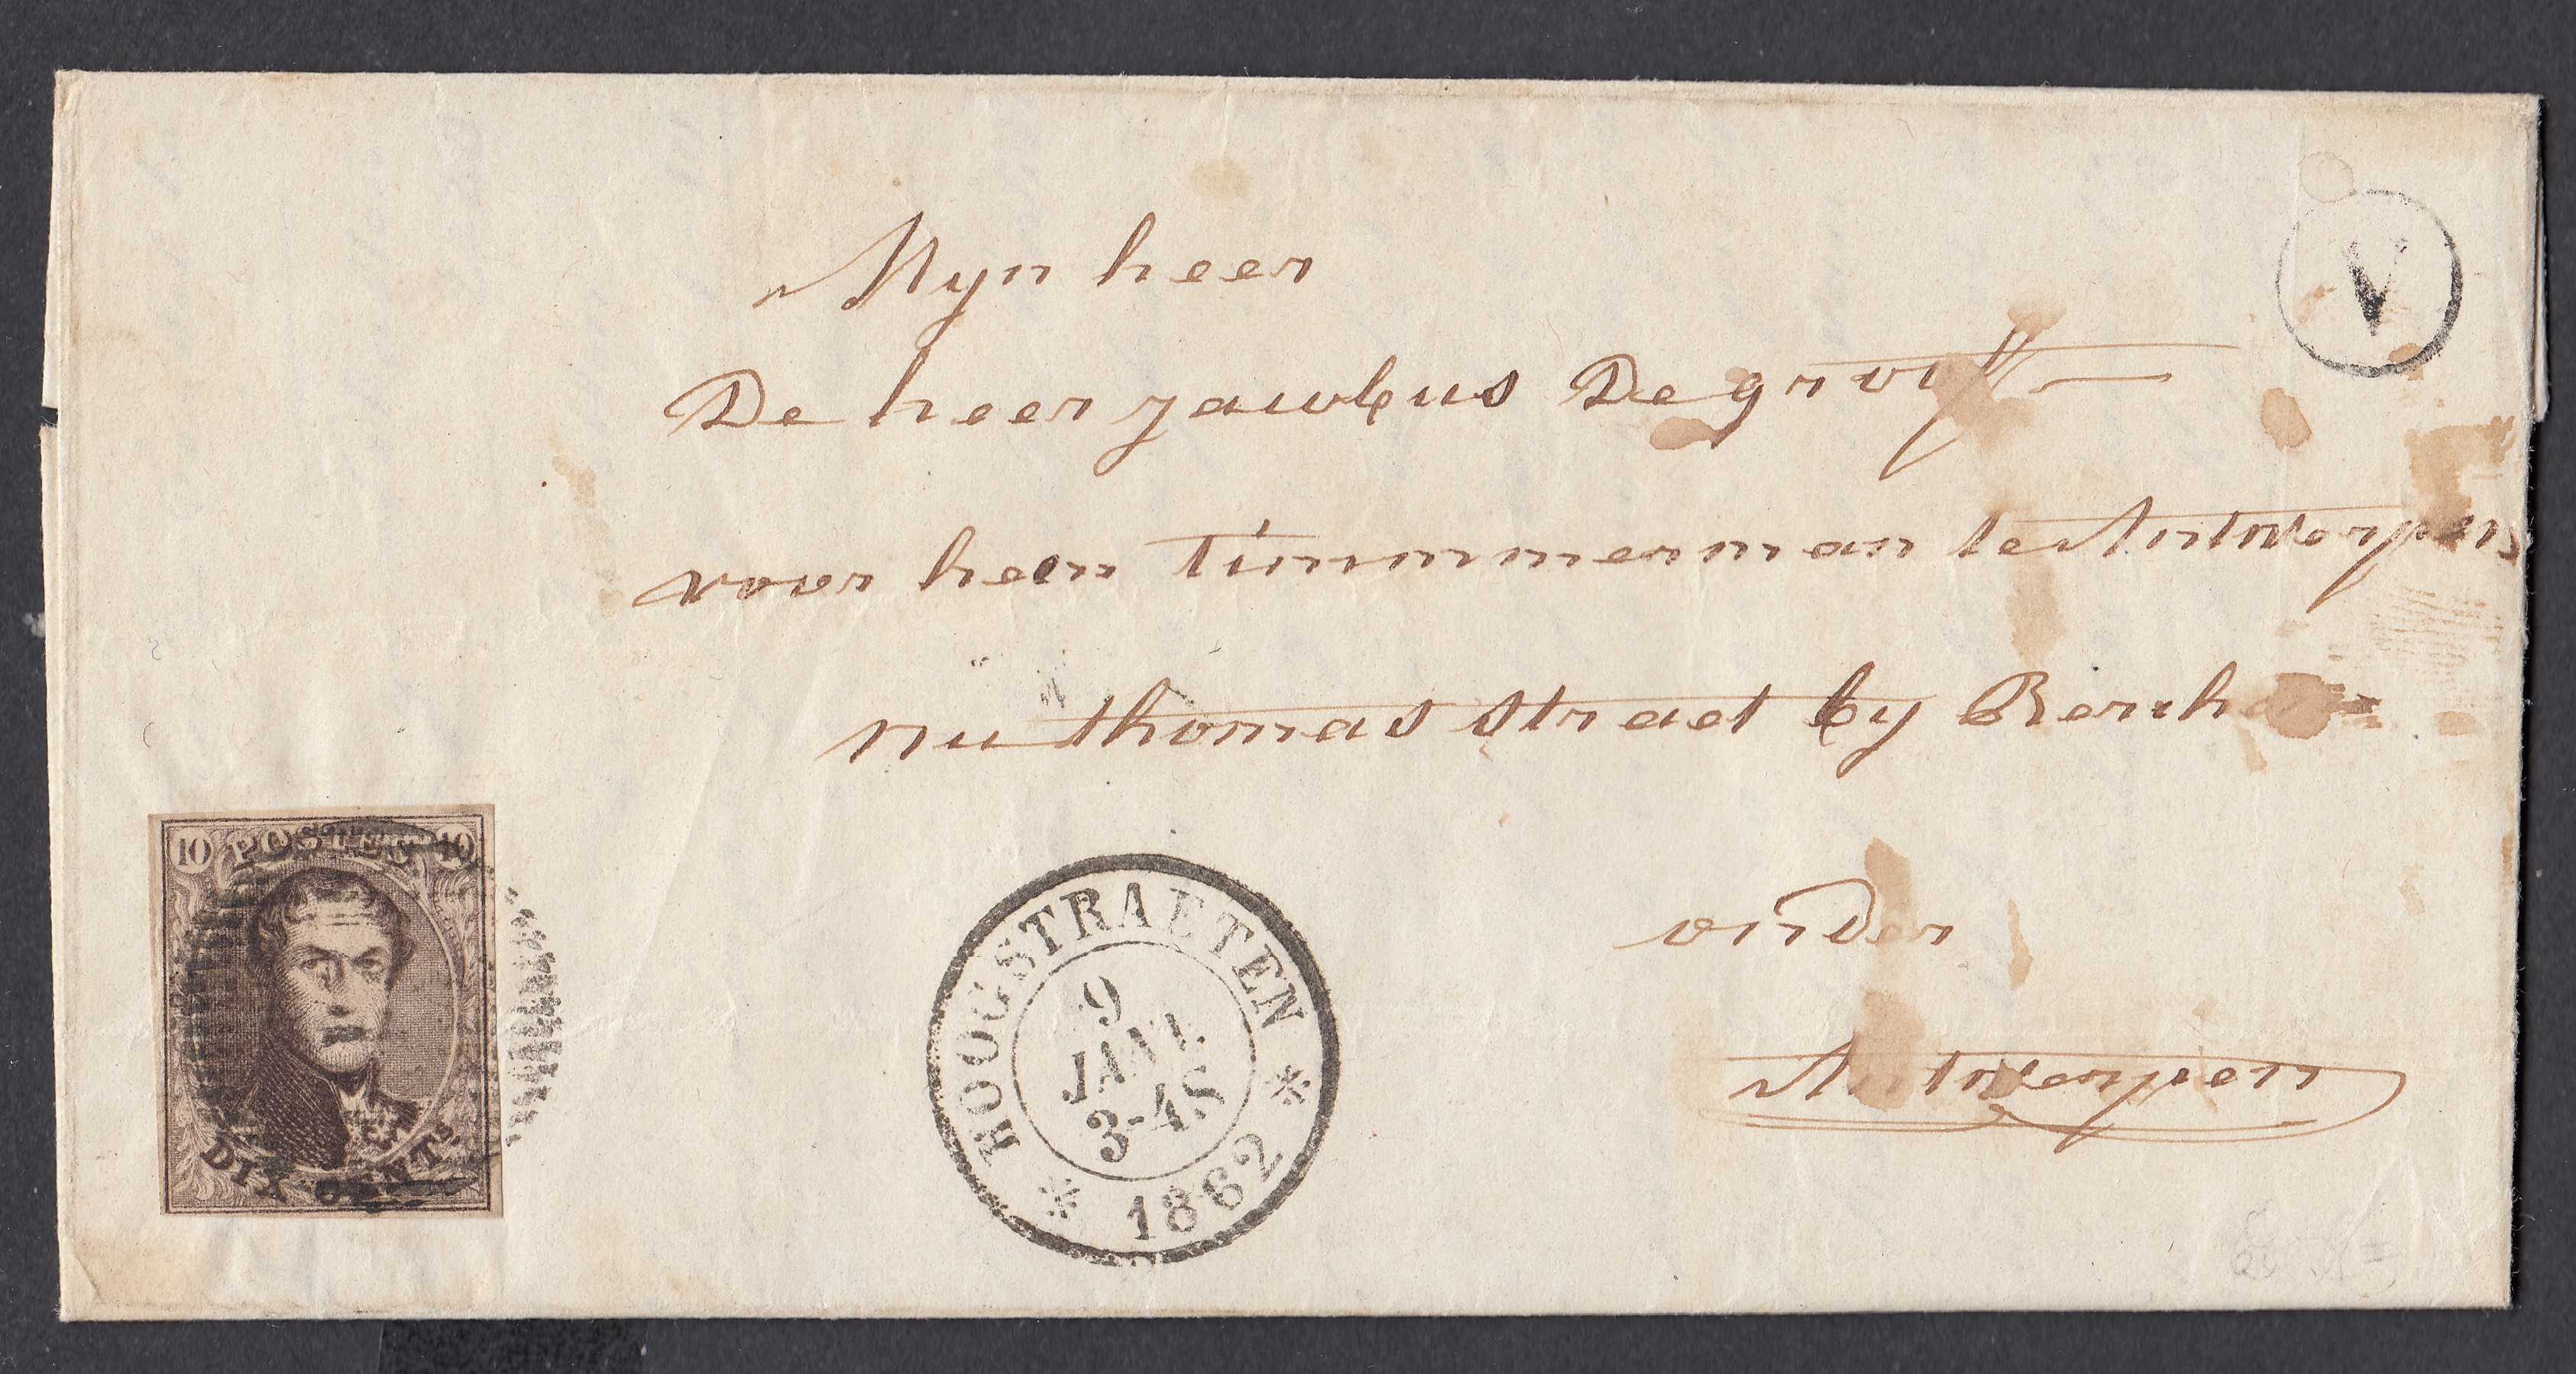 V
Myn heer
De heer jacobus De groff
voor heen timmmerman te Antwerpen
nu thomas straet by Berch
onder
Antwerpen
10 POSTES 10
DIX CENTS.
HOOGSTRAETEN
9
JANV.
3-4S
1862